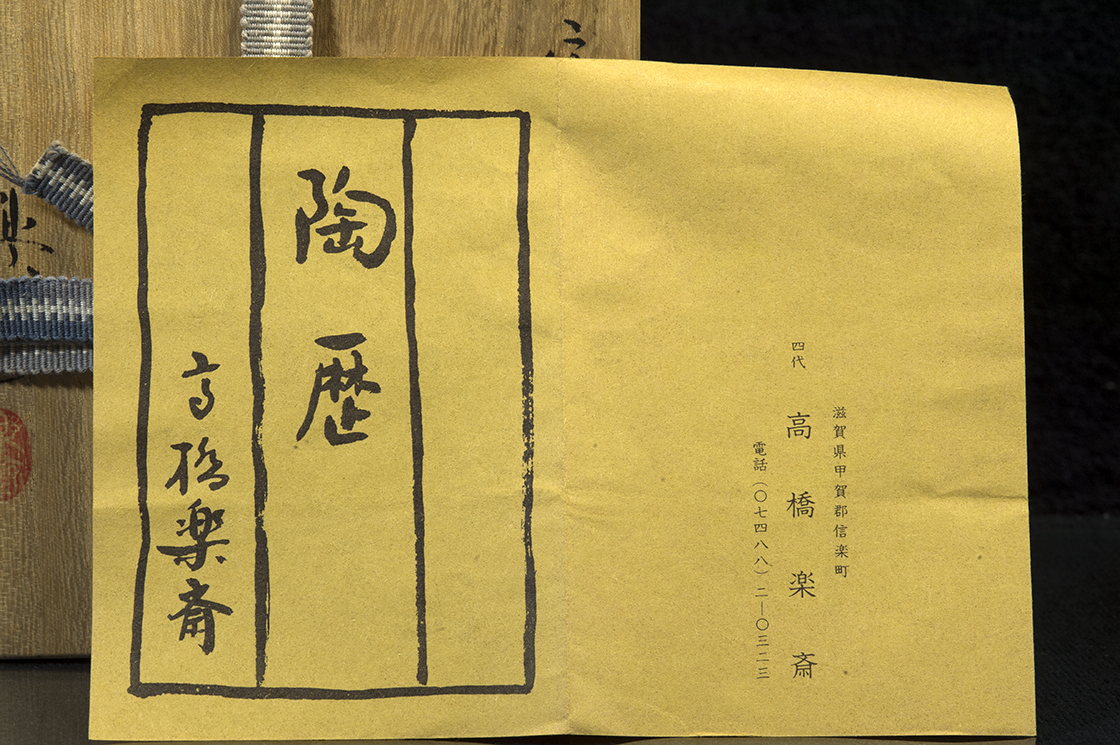 陶歴
高橋楽斎
滋賀県甲賀郡信楽町
四代 高橋楽斎
電話(〇七四八八)二―〇三二三
信
楽